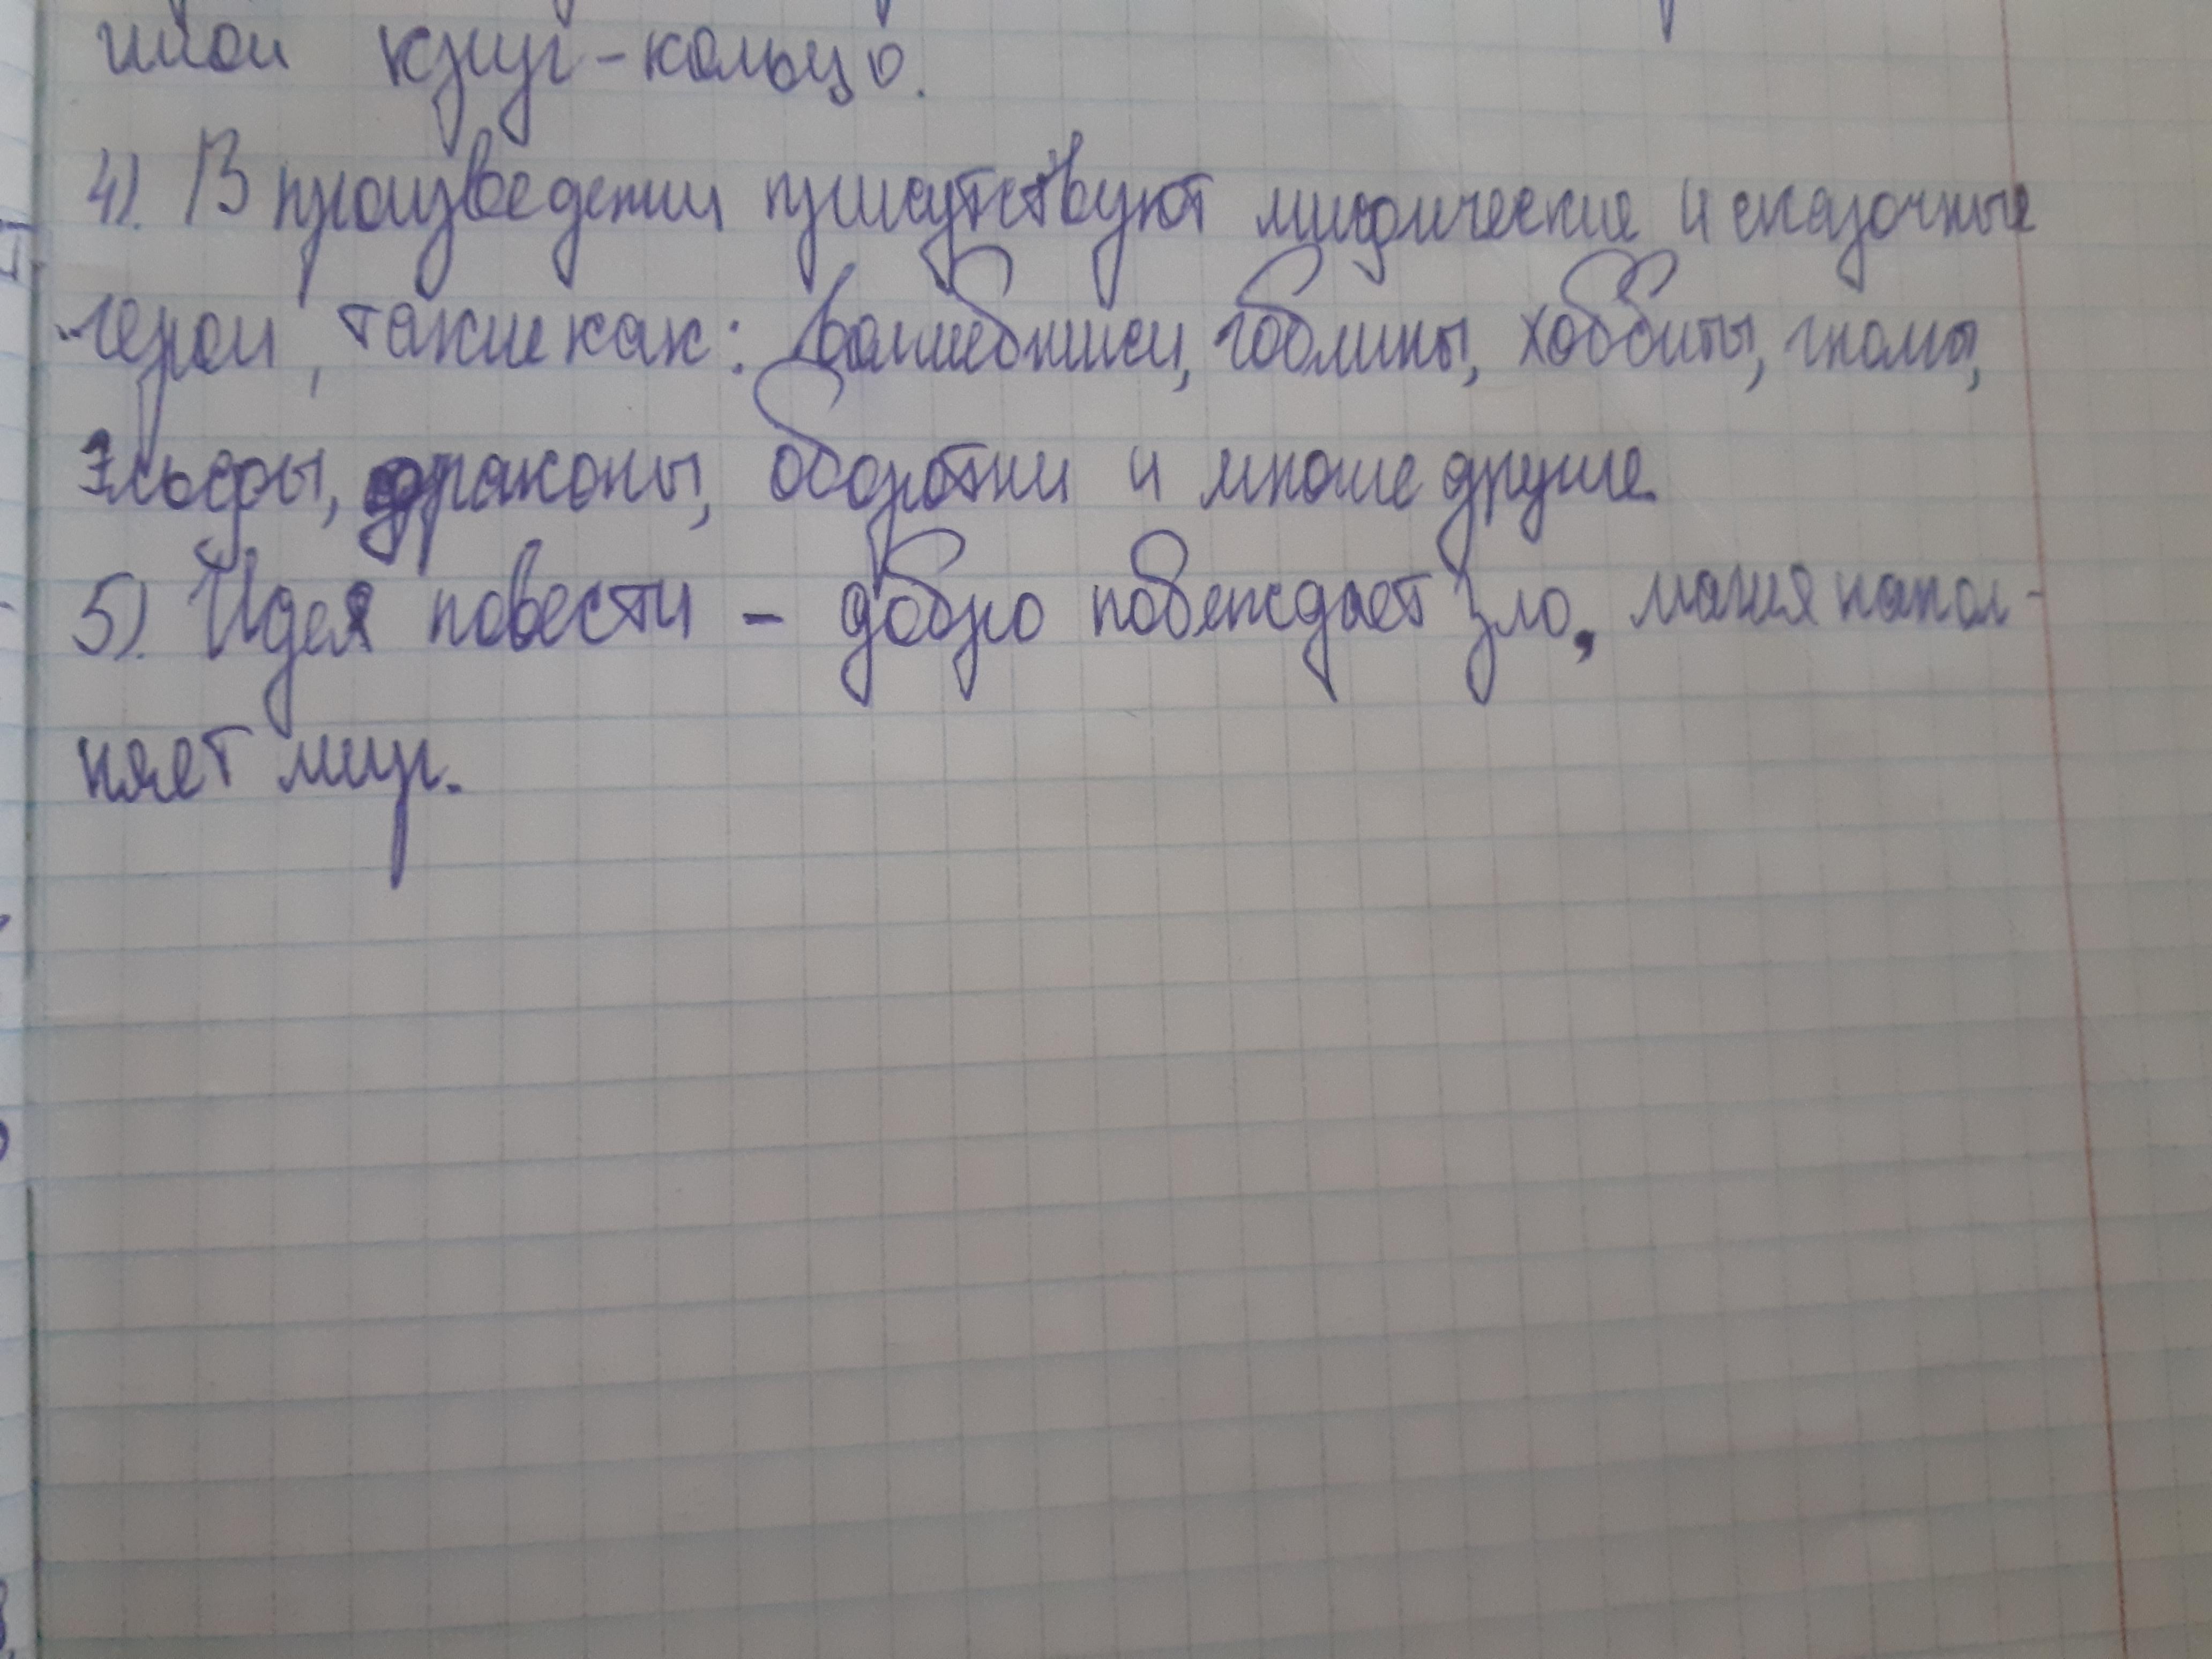 круг-кольцо.
4). В произведении присутствуют мифические и сказочные
герои, такие как: волшебники, гоблины, хоббиты, гномы,
эльфы, драконы, оборотни и многие другие.
5). Идея повести - добро побеждает зло, магия напол-
няет мир.